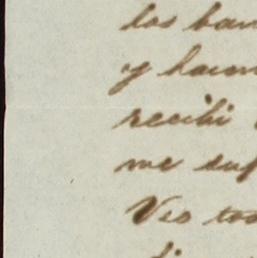 los ban
y hacen
recibi
me suf
Veo tod